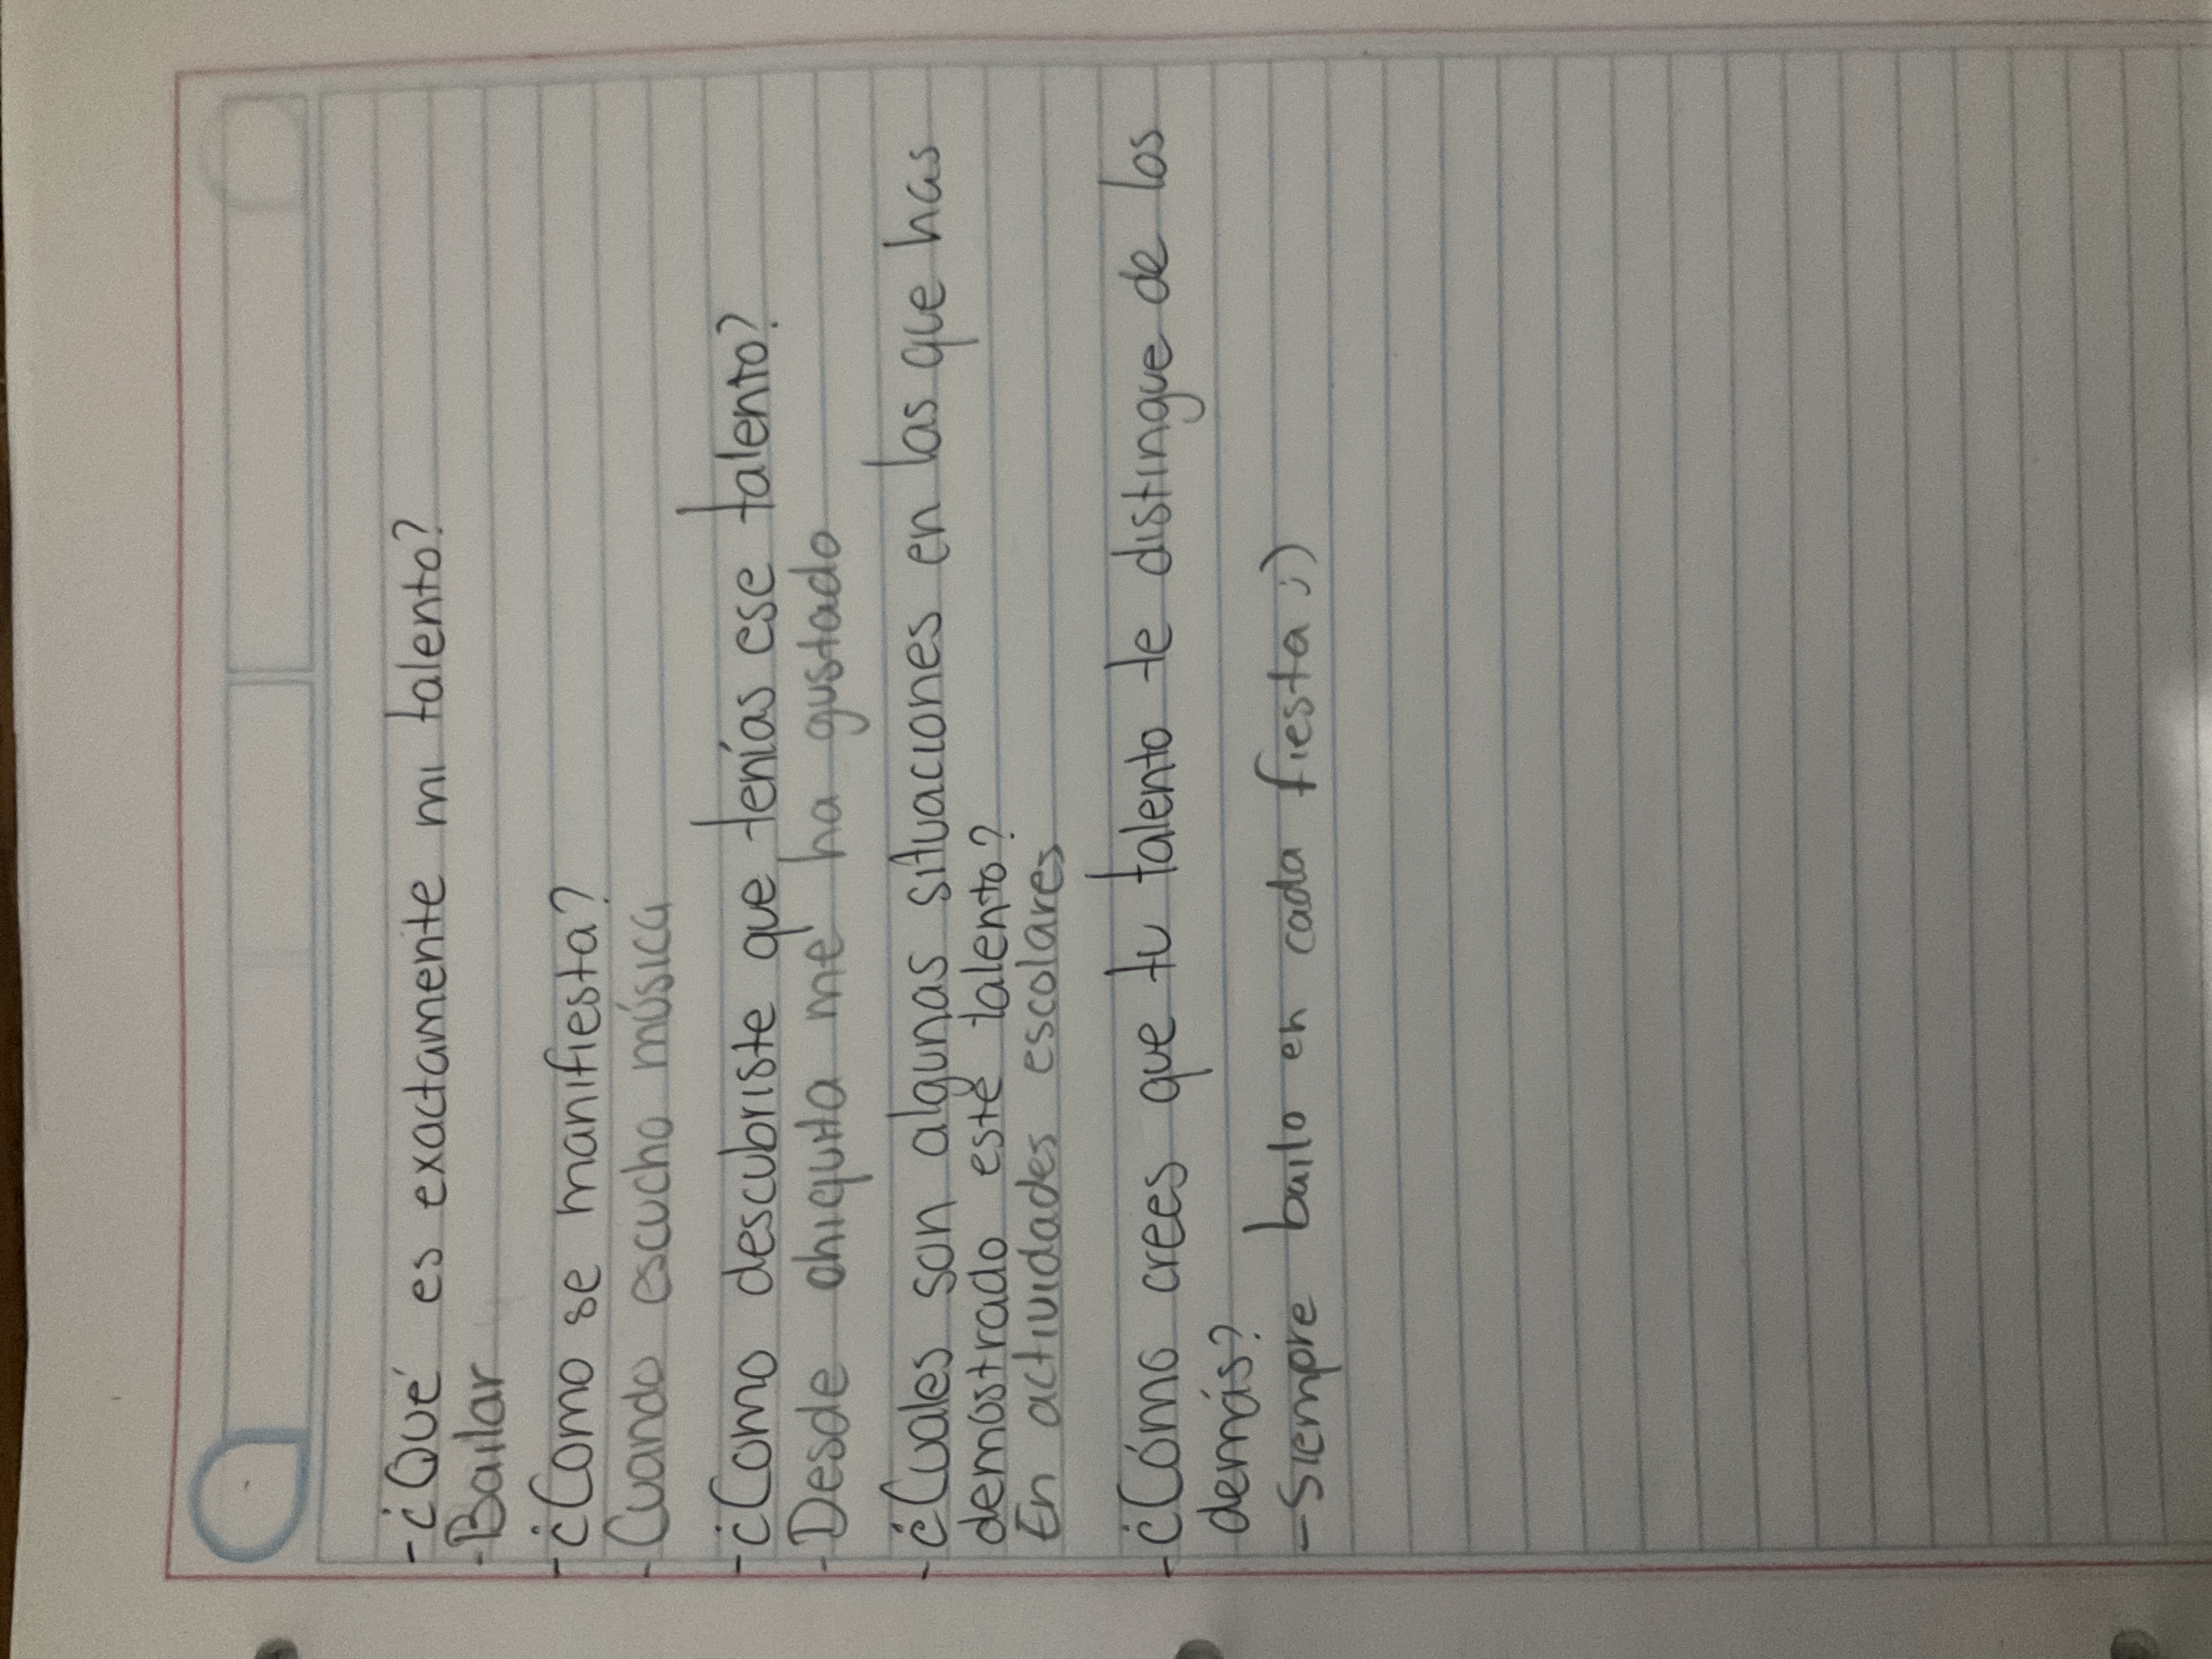 -¿Qué es exactamente mi talento?
-Bailar
-¿Como se manifiesta?
-Cuando escucho música
-¿Como descubriste que tenías ese talento?
-Desde chiquita me ha gustado
-¿Cuales son algunas situaciones en las que has
demostrado este talento?
En actividades escolares
-¿Cómo crees que tu talento te distingue de los
demás?
-Siempre bailo en cada fiesta ;)